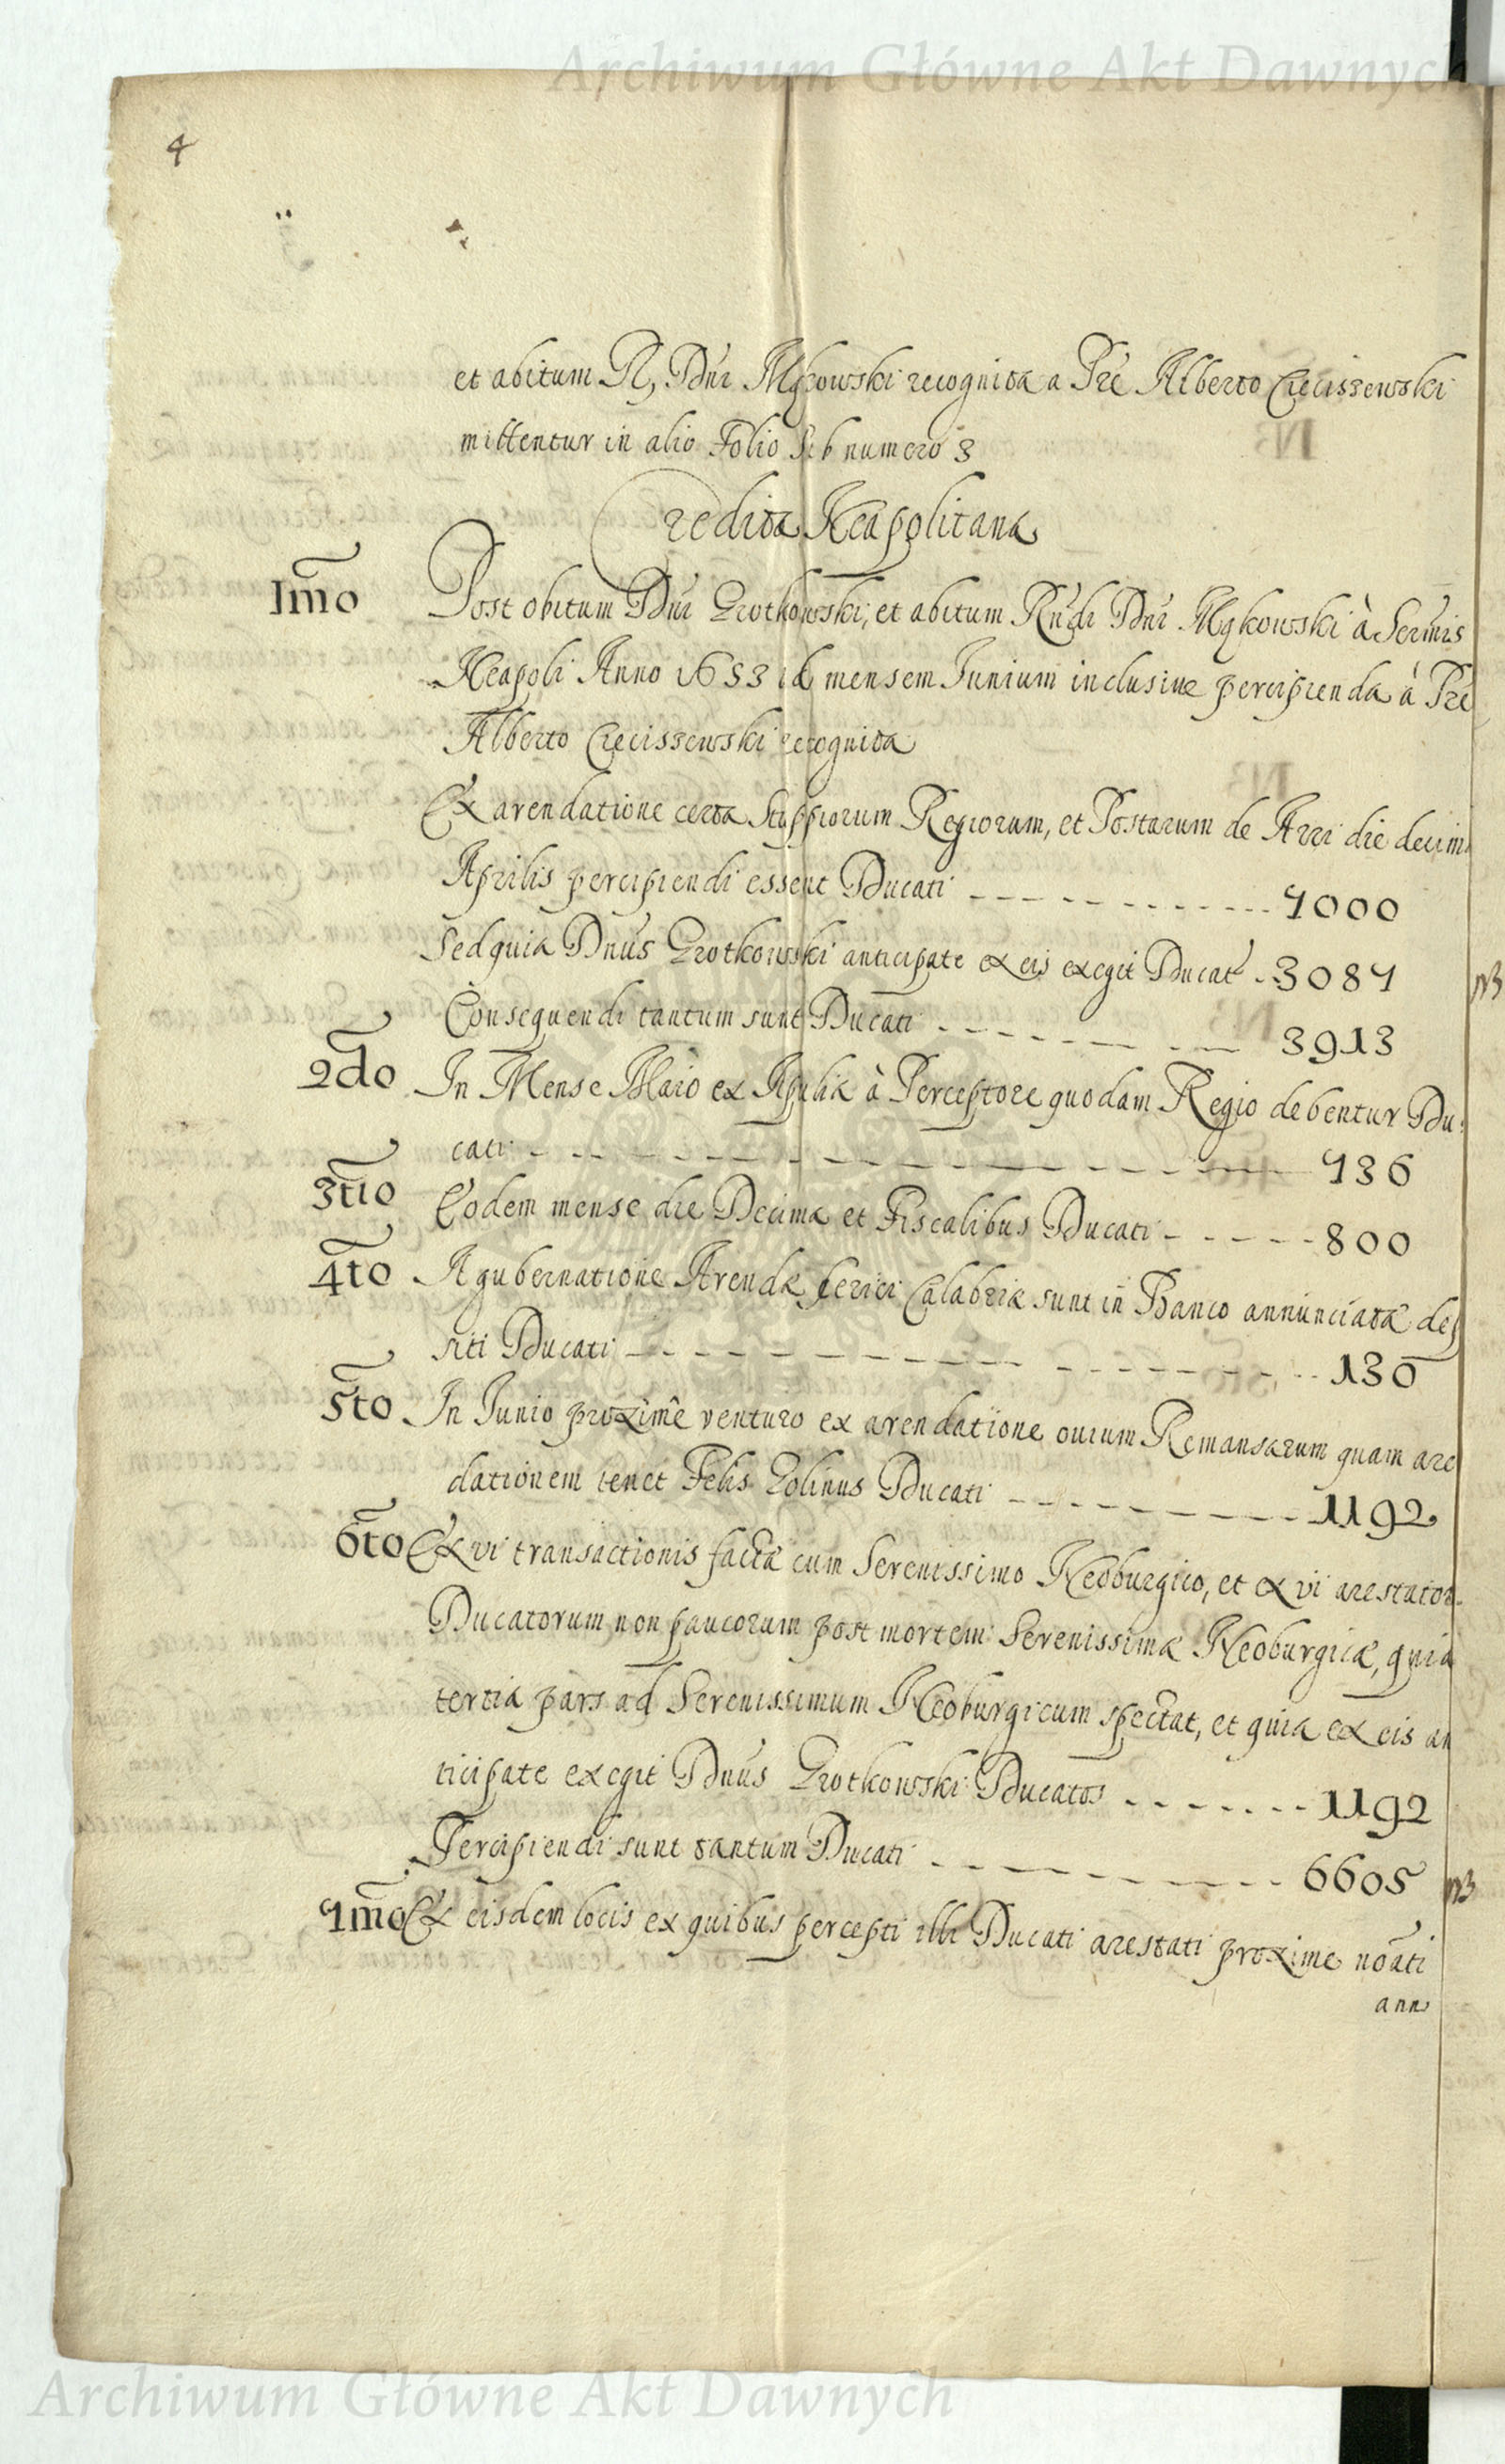 Archiwum Główne Akt Dawnych
4
et abitum R, Dni Mąkowski recognita a Pre Alberto Cieciszewski
mittentur in alio Folio sub numero 3
Credita Neapolitana
1mo Post obitum Dni Grotkowski, et abitum Rndi Dni Mąkowski à Sermis
Neapoli Anno 1653 ad mensem Junium inclusive percipienda à Pre
Alberto Cieciszewski recognita
Ex arendatione certa Stuppiorum Regiorum, et Postarum de Arri die decima
Aprilis percipiendi essent Ducati 7000
Sed quia Dnus Grotkowski anticipate ex eis exegit Ducat 3087
Consequendi tantum sunt Ducati 3913
2do In Mense Maio ex Apulia à Perceptore quodam Regio debentur Du:
cati 736
3tio Eodem mense die Decima et Fiscalibus Ducati 800
4to A gubernatione Arendæ serici Calabriæ sunt in Banco annunciatæ dep
siti Ducati 130
5to In Junio proximê venturo ex arendatione ovium Remansarum quam are
dationem tenet Felis Golinus Ducati 1192
6to Ex vi transactionis factæ cum Serenissimo Neoburgico, et ex vi arestator.
Ducatorum non paucorum post mortem Serenissimæ Neoburgicæ, quia
tertia pars ad Serenissimum Neoburgicum spectat, et quia ex eis an
ticipate exegit Dnus Grotkowski Ducatos 1192
Percipiendi sunt tantum Ducati 6605
7mo Ex eisdem locis ex quibus percepti illi Ducati arestati proxime noati
ann
Archiwum Główne Akt Dawnych